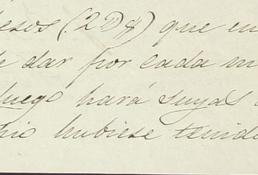 esos (2D$) que en
e dar por cada m
luego hará suyas
hubiese tenido